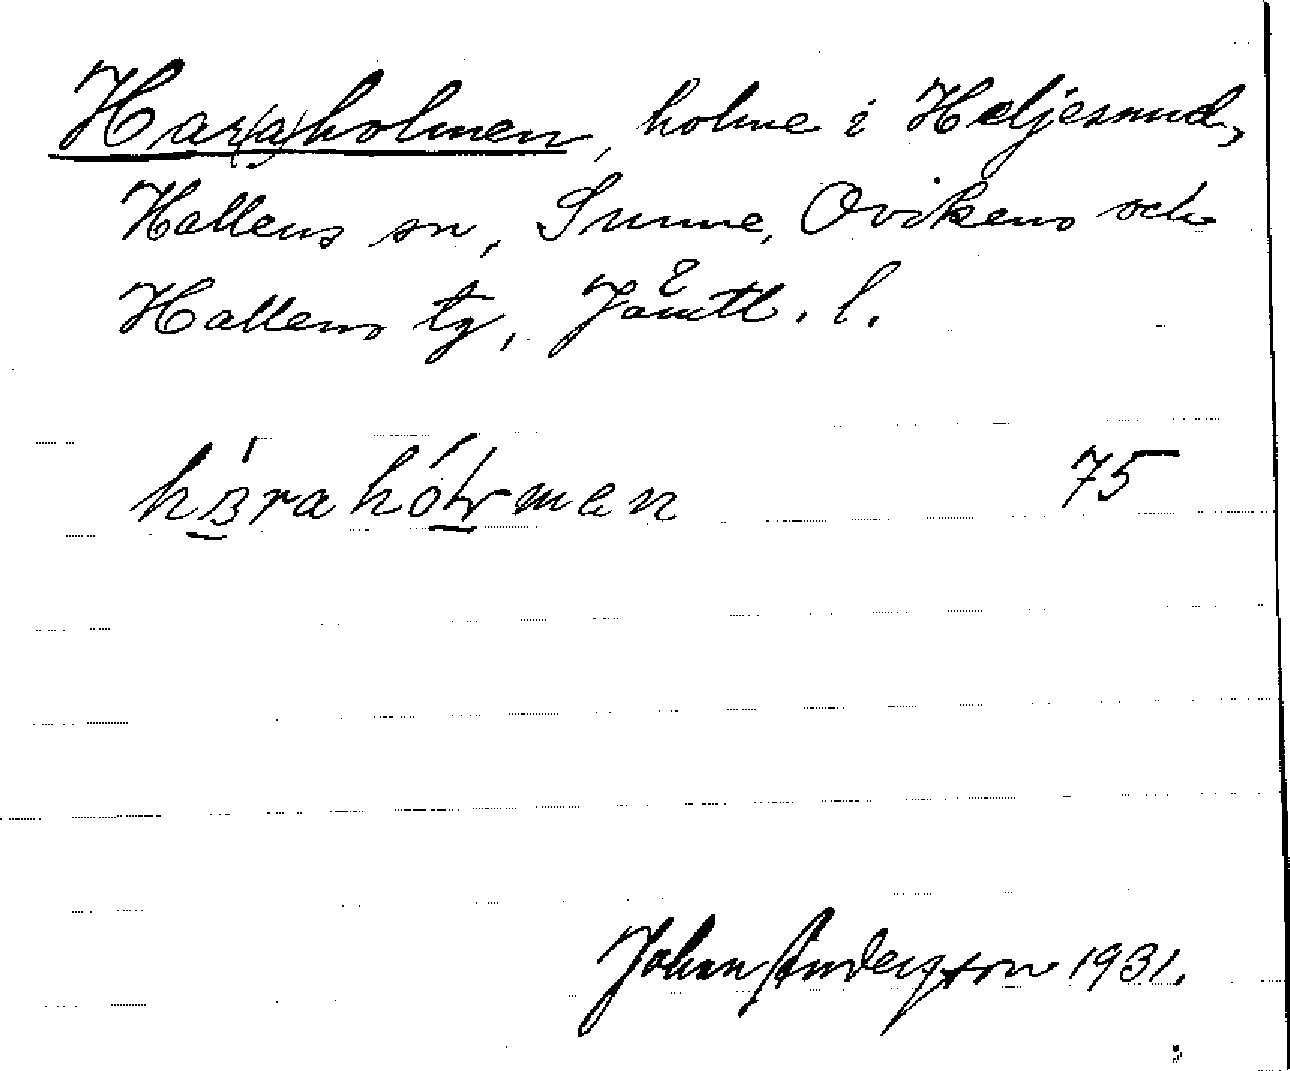 Har(a)holmen, holme i Heljesund,
Hallens sn, Sunne, Ovikens och
Hallens tg, Jämtl. l.
75
Johan Andersson 1931.